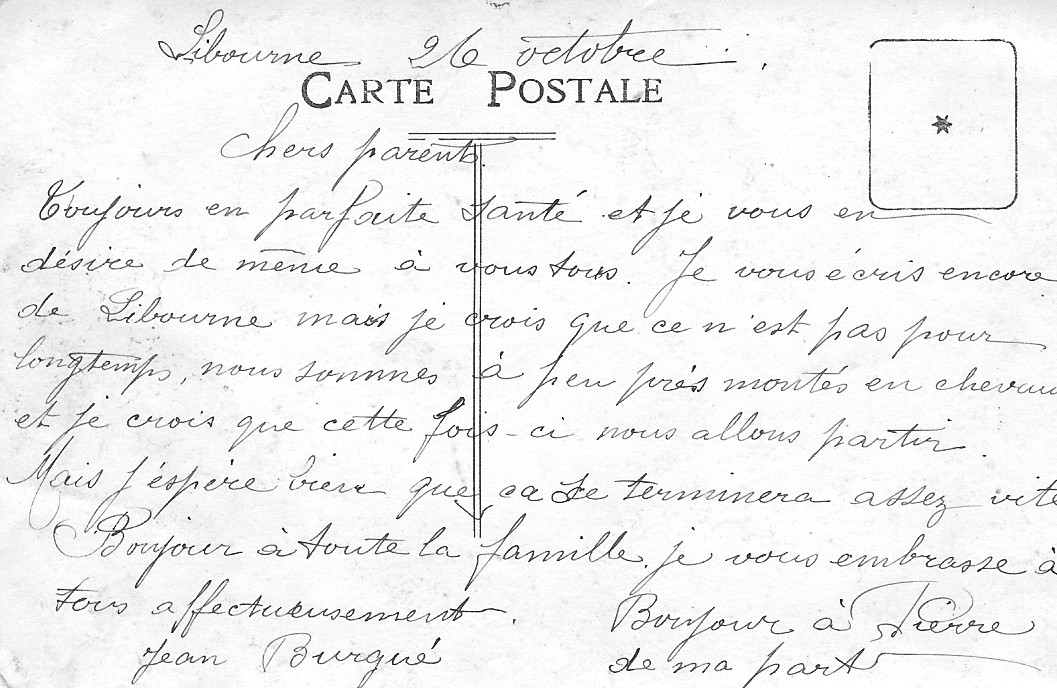 Libourne 26 octobre.
CARTE POSTALE
Chers parents
Toujours en parfaite santé et je vous en
désire de même à vous tous. Je vous écris encore
de Libourne mais je crois que ce n'est pas pour
longtemps, nous sommes à peu près montés en chevaux
et je crois que cette fois-ci nous allons partir.
Mais j'éspère bien que ca se terminera assez vite
Bonjour à toute la famille. je vous embrasse à
tous affectueusement.
Bonjour à Pierre
Jean Burgué
de ma part